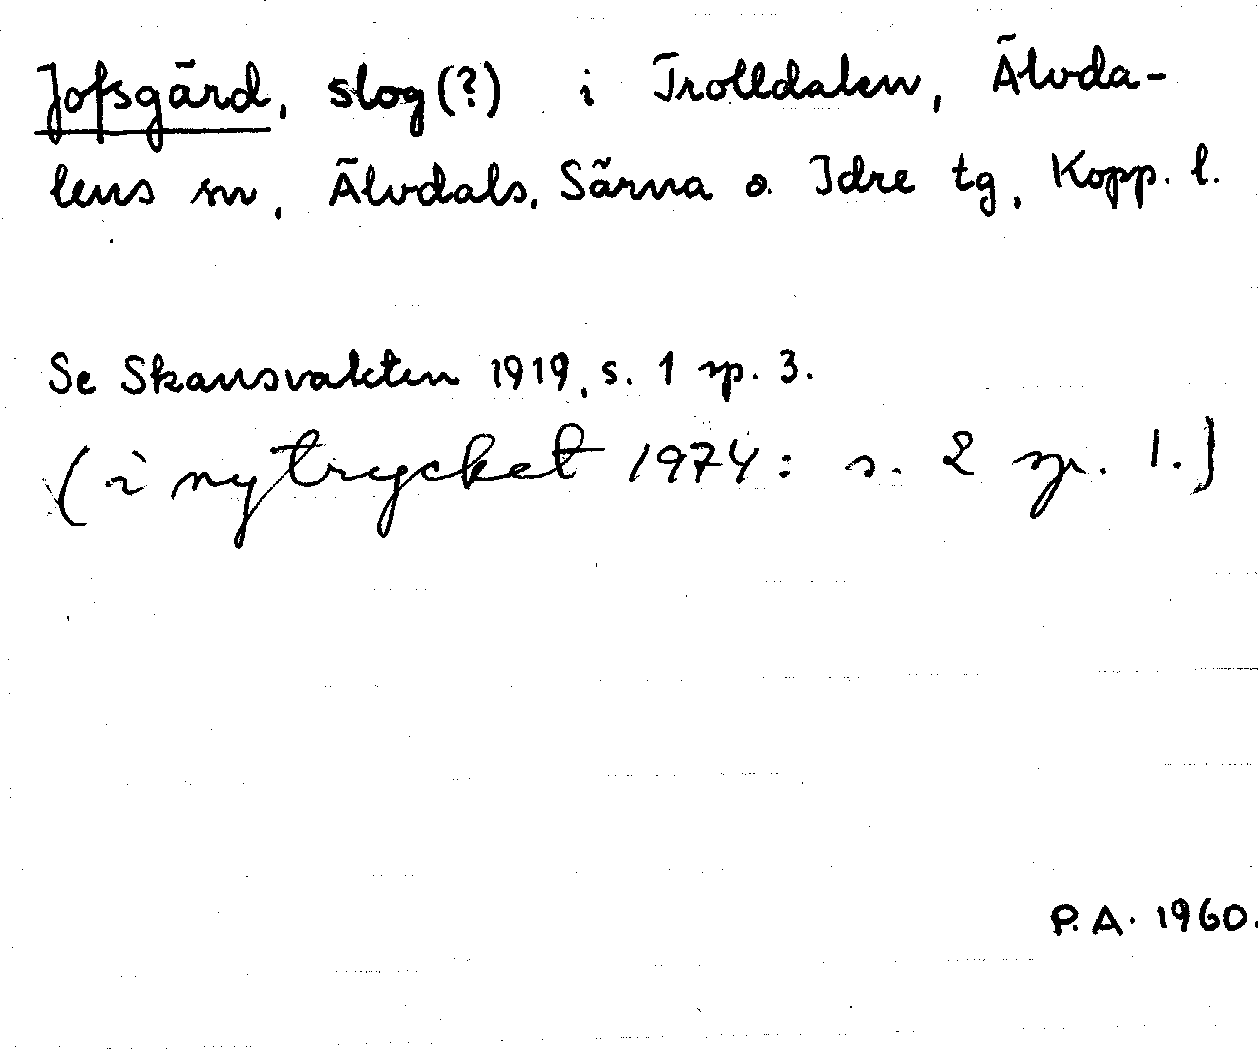 Jofsgärd, slog(?) i Trolldalen, Älvda-
lens sn, Älvdals, Särna o. Idre tg, Kopp. l.
Se Skansvakten 1919, s. 1 sp. 3.
(i nytrycket 1974: s. 2 sp. 1.)
P.A. 1960.